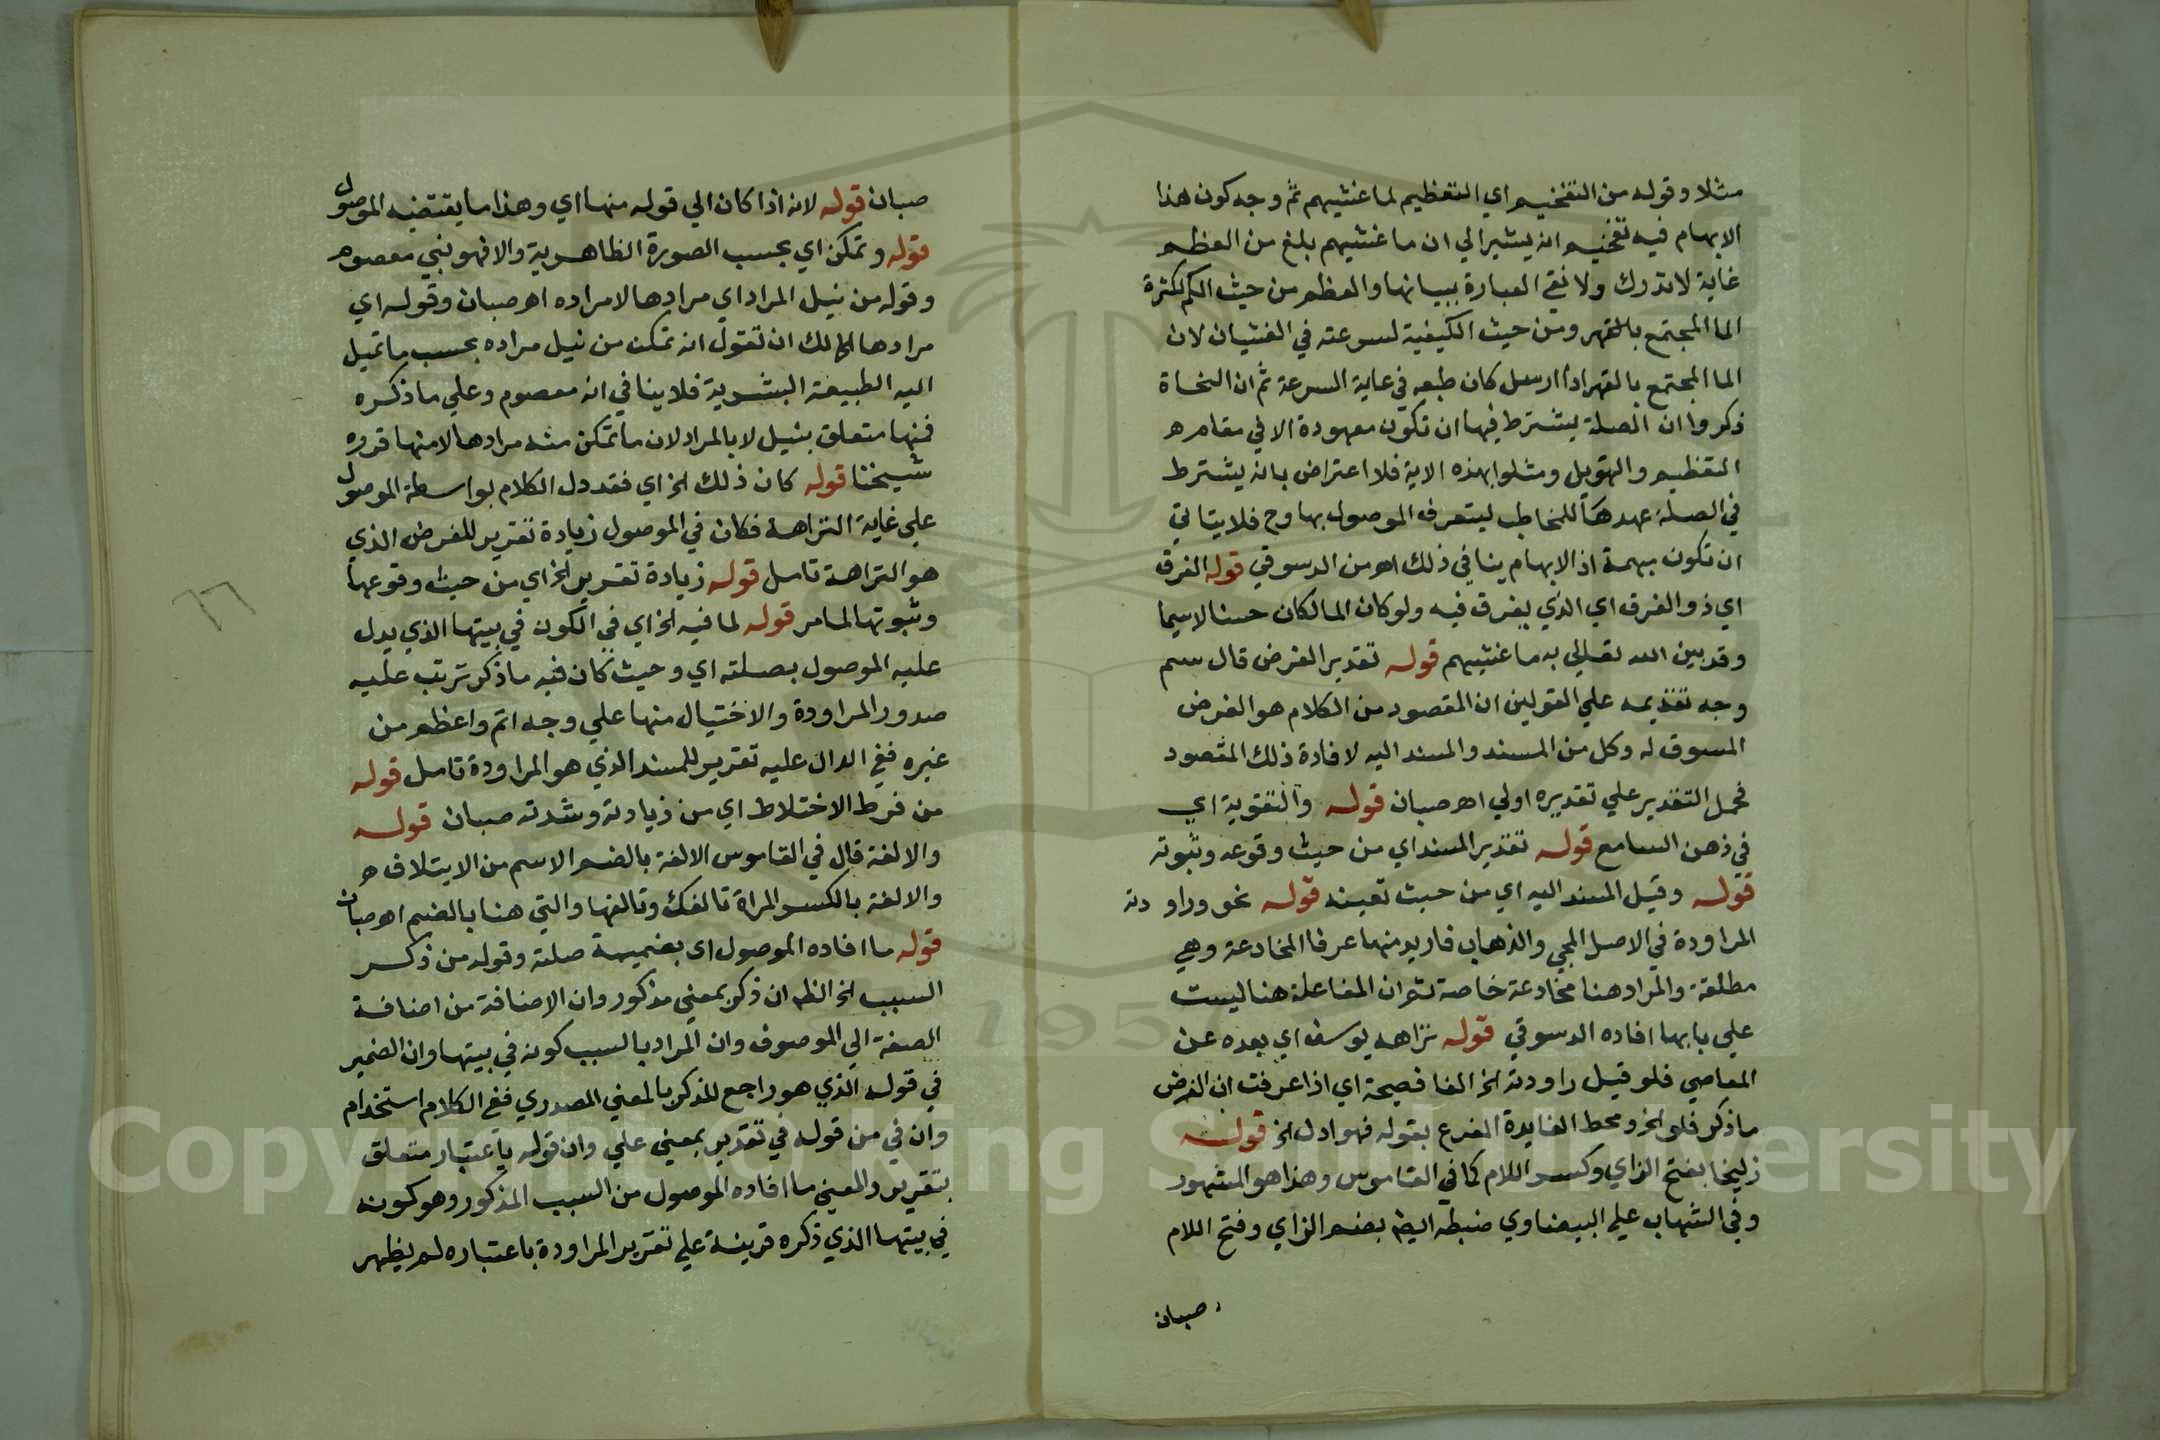 مثلا وقوله من التفخيم اي التعظيم لما غشيهم ثم وجه كون هذا
الابهام فيه تفخيم انه يشير الي ان ما غشيهم بلغ من العظم
غاية لا تدرك ولا تفي العبارة ببيانها والعظم من حيث الكم لكثرة
الما المجتمع بالقهر ومن حيث الكيفية لسرعته في الغشيان لان
الما المجتمع بالقهر اذا ارسل كان طبعه في غاية السرعة ثم ان النحاة
ذكروا ان الصلة يشترط فيها ان تكون معهودة الا في مقام
التعظيم والتهويل ومثلوا بهذه الاية فلا اعتراض بانه يشترط
في الصلة عهدها للمخاطب ليتعرف الموصول بها وح فلا يتاتي
ان تكون مبهمة اذ الابهام ينافي ذلك اهـ من الدسوقي قوله الغرق
اي ذو الغرق اي الذي يغرق فيه ولو كان الما لكان حسنا لاسيما
وقد بين الله تعالي به ما غشيهم قوله تقدير الغرض قال سم
وجه تقديمه علي القولين ان المقصود من الكلام هو الغرض
المسوق له وكل من المسند والمسند اليه لافادة ذلك المقصود
فحمل التقدير علي تقديره اولي اهـ صبان قوله والتقوية اي
في ذهن السامع قوله تقدير المسند اي من حيث وقوعه وثبوته
قوله وقيل المسند اليه اي من حيث تعينه قوله نحو وراودته
المراودة في الاصل المجي والذهاب فاريد منها عرفا المخادعة وهي
مطلقة والمراد هنا مخادعة خاصة ثم ان المفاعلة هنا ليست
علي بابها افاده الدسوقي قوله نزاهه يوسف اي بعده عن
المعاصي فلو قيل راودته الخ الفا فصيحة اي اذا عرفت ان الغرض
ما ذكر فلو الخ ومحط الفايدة المفرع بقوله فهو ادل الخ قوله
زليخا بفتح الزاي وكسر اللام كما في القاموس وهذا هو المشهور
وفي الشهاب علي البيضاوي ضبطه ايضا بضم الزاي وفتح اللام
صبان
صبان قوله لانه اذا كان الي قوله منها اي وهذا ما يقتضيه الموصول
قوله وتمكن اي بحسب الصورة الظاهرية والا فهو نبي معصوم
وقوله من نيل المراد اي مرادها لا مراده اهـ صبان وقوله اي
مرادها الخ لك ان تقول انه تمكن من نيل مراده بحسب ما تميل
اليه الطبيعة البشرية فلا ينافي انه معصوم وعلي ما ذكره
فمنها متعلق بنيل لا بالمراد لان ما تمكن منه مرادها لا منها قرره
شيخنا قوله كان ذلك الخ اي فقد دل الكلام بواسطة الموصول
علي غاية النزاهة فكان في الموصول زيادة تقرير للغرض الذي
هو النزاهة تامل قوله زيادة تقرير الخ اي من حيث وقوعها
وثبوتها لما مر قوله لما فيه الخ اي في الكون في بيتها الذي يدل
عليه الموصول بصلته اي وحيث كان فيه ما ذكر ترتب عليه
صدور المراودة والاختيال منها علي وجه اتم واعظم من
غيره ففي الدال عليه تقرير للمسند الذي هو المراودة تامل قوله
من فرط الاختلاط اي من زيادته وشدته صبان قوله
والالفة قال في القاموس الالفة بالضم الاسم من الايتلاف
والالفة بالكسر المراة تالفك وتالفها والتي هنا بالضم اهـ صبان
قوله ما افاده الموصول اي بضميمة صلته وقوله من ذكر
السبب الخ الظ ان ذكر بمعني مذكور وان الاضافة من اضافة
الصفة الي الموصوف وان المراد بالسبب كونه في بيتها وان الضمير
في قوله الذي هو راجع للذكر بالمعني المصدري ففي الكلام استخدام
وان في من قوله في تقرير بمعني علي وان قوله باعتبار متعلق
بتقرير والمعني ما افاده الموصول من السبب المذكور وهو كونه
في بيتها الذي ذكره قرينة علي تقرير المراودة باعتباره لم يظهر
٦٦
1957
Copyright © King Saud University